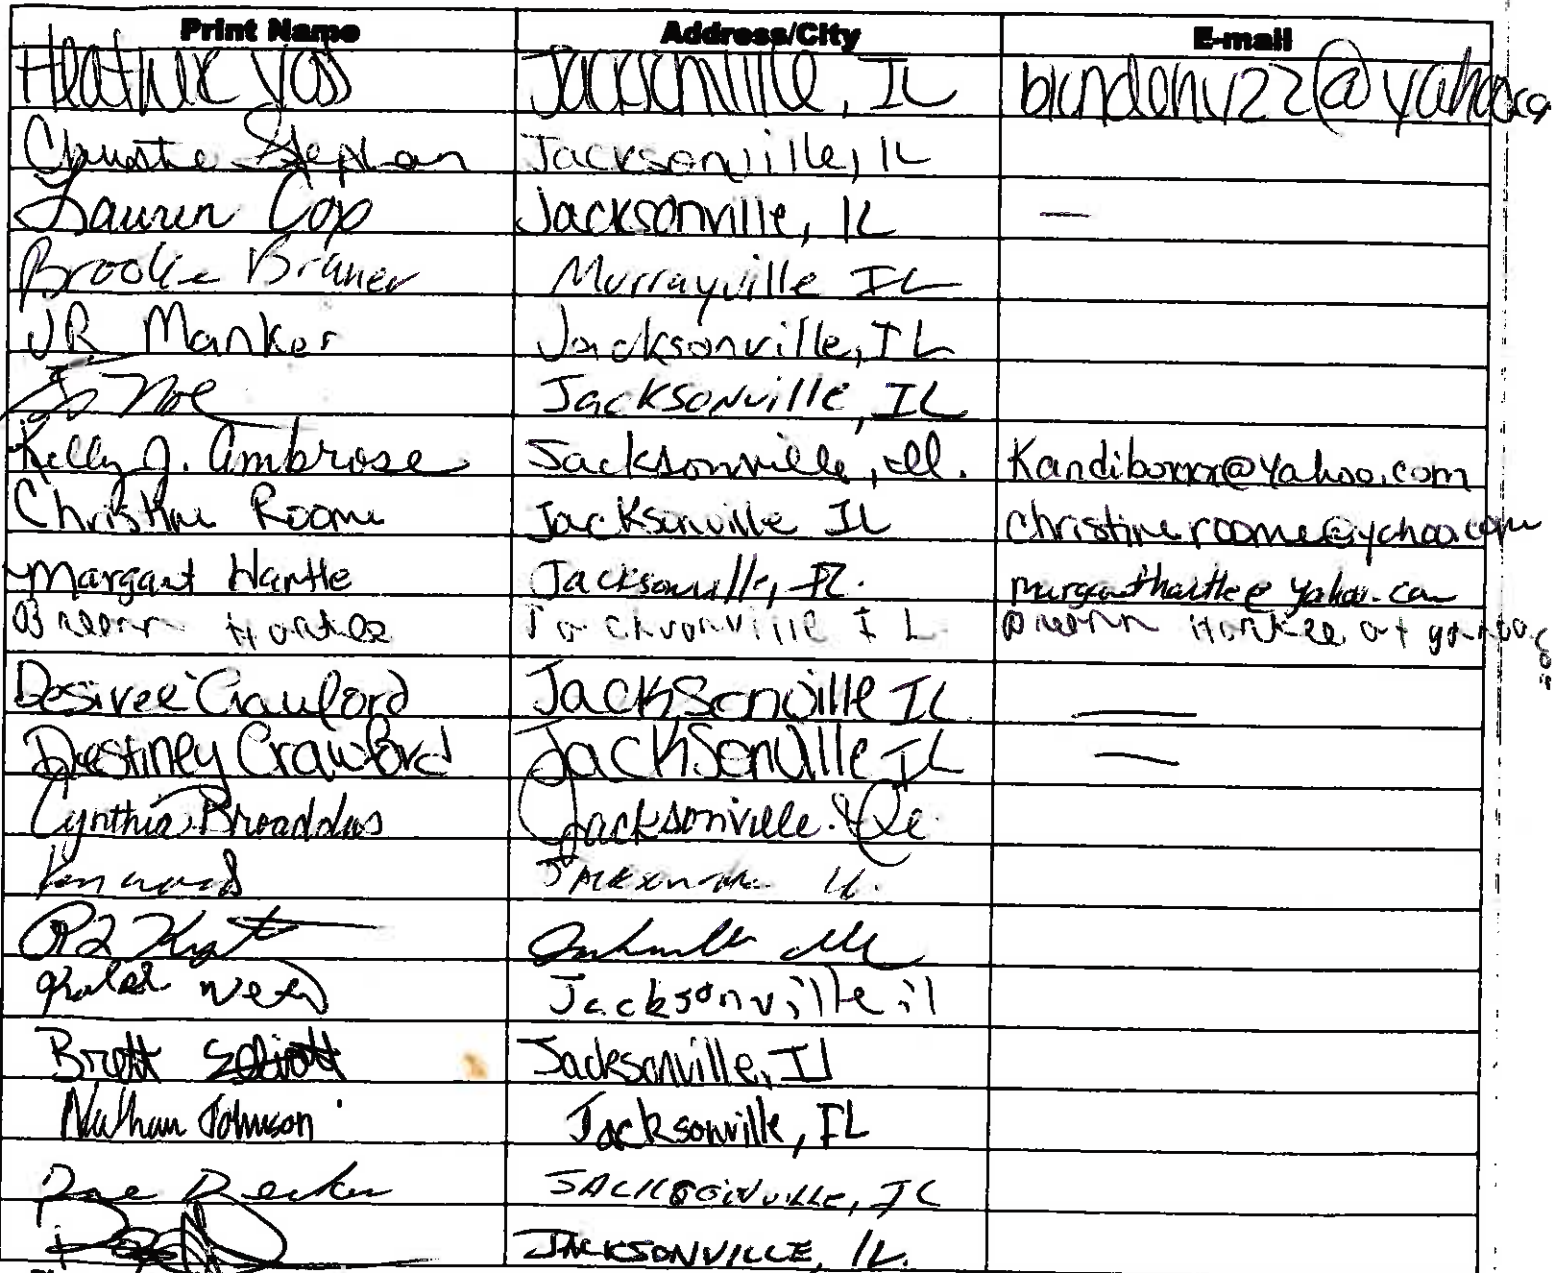 Print Name Address/City E-mail
Heather Voss Jacksonville, IL @yahoo.co
Christie Stephan Jacksonville, IL
Lauren Cop Jacksonville, IL —
Brooke Braner Murrayville IL
JR Manker Jacksonville, IL
Noe Jacksonville, IL
Kelly J. Ambrose Jacksonville, Ill. Kandiboxxx@yahoo.com
Christine Roome Jacksonville IL christineroome@yahoo.com
Margaret Hartle Jacksonville, IL. margarethartle@yahoo.com
Jacksonville IL at
Desiree Crawford Jacksonville IL —
Destiney Crawford Jacksonville IL —
Cynthia Broaddus Jacksonville. Ill.
Jacksonville Il.
Jacksonville Ill
Jacksonville il
Brett Elliott Jacksonville, Il
Nathan Johnson Jacksonville, IL
Becker JACKSONVILLE, IL
JACKSONVILLE, IL.